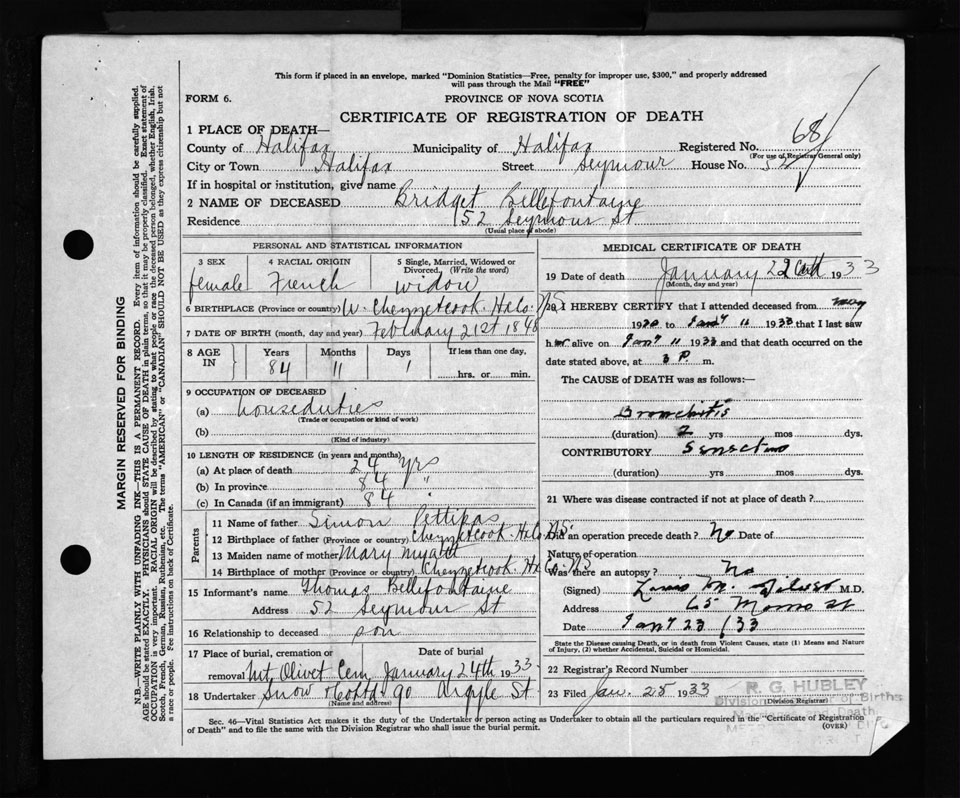 This form if placed in an envelope, marked "Dominion Statistics—Free, penalty for improper use, $300," and properly addressed
will pass through the Mail "FREE"
FORM 6.
PROVINCE OF NOVA SCOTIA
CERTIFICATE OF REGISTRATION OF DEATH
68
1 PLACE OF DEATH—
County of Halifax Municipality of Halifax Registered No.
(For use of Registrar General only)
City or Town Halifax Street Seymour House No. 52
If in hospital or institution, give name
2 NAME OF DECEASED Bridget Bellefontaine
Residence 52 Seymour St
(Usual place of abode)
PERSONAL AND STATISTICAL INFORMATION
3 SEX 4 RACIAL ORIGIN 5 Single, Married, Widowed or
Divorced (Write the word)
female French widow
6 BIRTHPLACE (Province or country) W. Chezzetcook. Ha Co. N.S
7 DATE OF BIRTH (month, day and year) February 21st 1848
8 AGE IN Years Months Days If less than one day,
84 11 1 hrs. or min.
9 OCCUPATION OF DECEASED
(a) houseduties
(Trade or occupation or kind of work)
(b)
(Kind of industry)
10 LENGTH OF RESIDENCE (in years and months)
(a) At place of death 24 yrs
(b) In province 84 "
(c) In Canada (if an immigrant) 84 "
Parents
11 Name of father Simon Pettipas
12 Birthplace of father (Province or country) Chezzetcook. Ha Co. N.S.
13 Maiden name of mother Mary Myatt
14 Birthplace of mother (Province or country) Chezzetcook Hx Co. N.S
15 Informant's name Thomas Bellefontaine
Address 52 Seymour St
16 Relationship to deceased son
17 Place of burial, cremation or Date of burial
removal Mt Olivet Cem January 24th 1933.
18 Undertaker Snow & Co Ltd 90 Argyle St
(Name and address)
MEDICAL CERTIFICATE OF DEATH
19 Date of death January 22nd 1933
(Month, day and year)
20 I HEREBY CERTIFY that I attended deceased from may
1930 to Jany 11 1933 that I last saw
her alive on Jany 11 1933 and that death occurred on the
date stated above, at 3 P. m.
The CAUSE of DEATH was as follows:—
Bronchitis
(duration) 2 yrs mos dys.
CONTRIBUTORY Senectus
(duration) yrs mos dys.
21 Where was disease contracted if not at place of death?
Did an operation precede death? No Date of
Nature of operation
Was there an autopsy? No
(Signed) M. M.D.
Address 65 Morris St
Date Jany 23 /33
State the Disease causing Death, or in death from Violent Causes, state (1) Means and Nature
of Injury, (2) whether Accidental, Suicidal or Homicidal.
22 Registrar's Record Number
23 Filed Jan. 25 1933
(Division Registrar)
R. G. HUBLEY
Division of Births
and Death
Sec. 46—Vital Statistics Act makes it the duty of the Undertaker or person acting as Undertaker to obtain all the particulars required in the "Certificate of Registration
of Death" and to file the same with the Division Registrar who shall issue the burial permit.
(OVER)
MARGIN RESERVED FOR BINDING
N.B.—WRITE PLAINLY WITH UNFADING INK—THIS IS A PERMANENT RECORD. Every item of information should be carefully supplied.
AGE should be stated EXACTLY. PHYSICIANS should STATE CAUSE OF DEATH in plain terms, so that it may be properly classified. Exact statement of
OCCUPATION is very important. RACIAL ORIGIN will be described by stating to what people or race the deceased person belonged, whether English, Irish,
Scotch, French, German, Russian, Ruthenian, etc. The terms "AMERICAN" or "CANADIAN" SHOULD NOT BE USED as they express citizenship but not
a race or people. Fee instructions on back of Certificate.